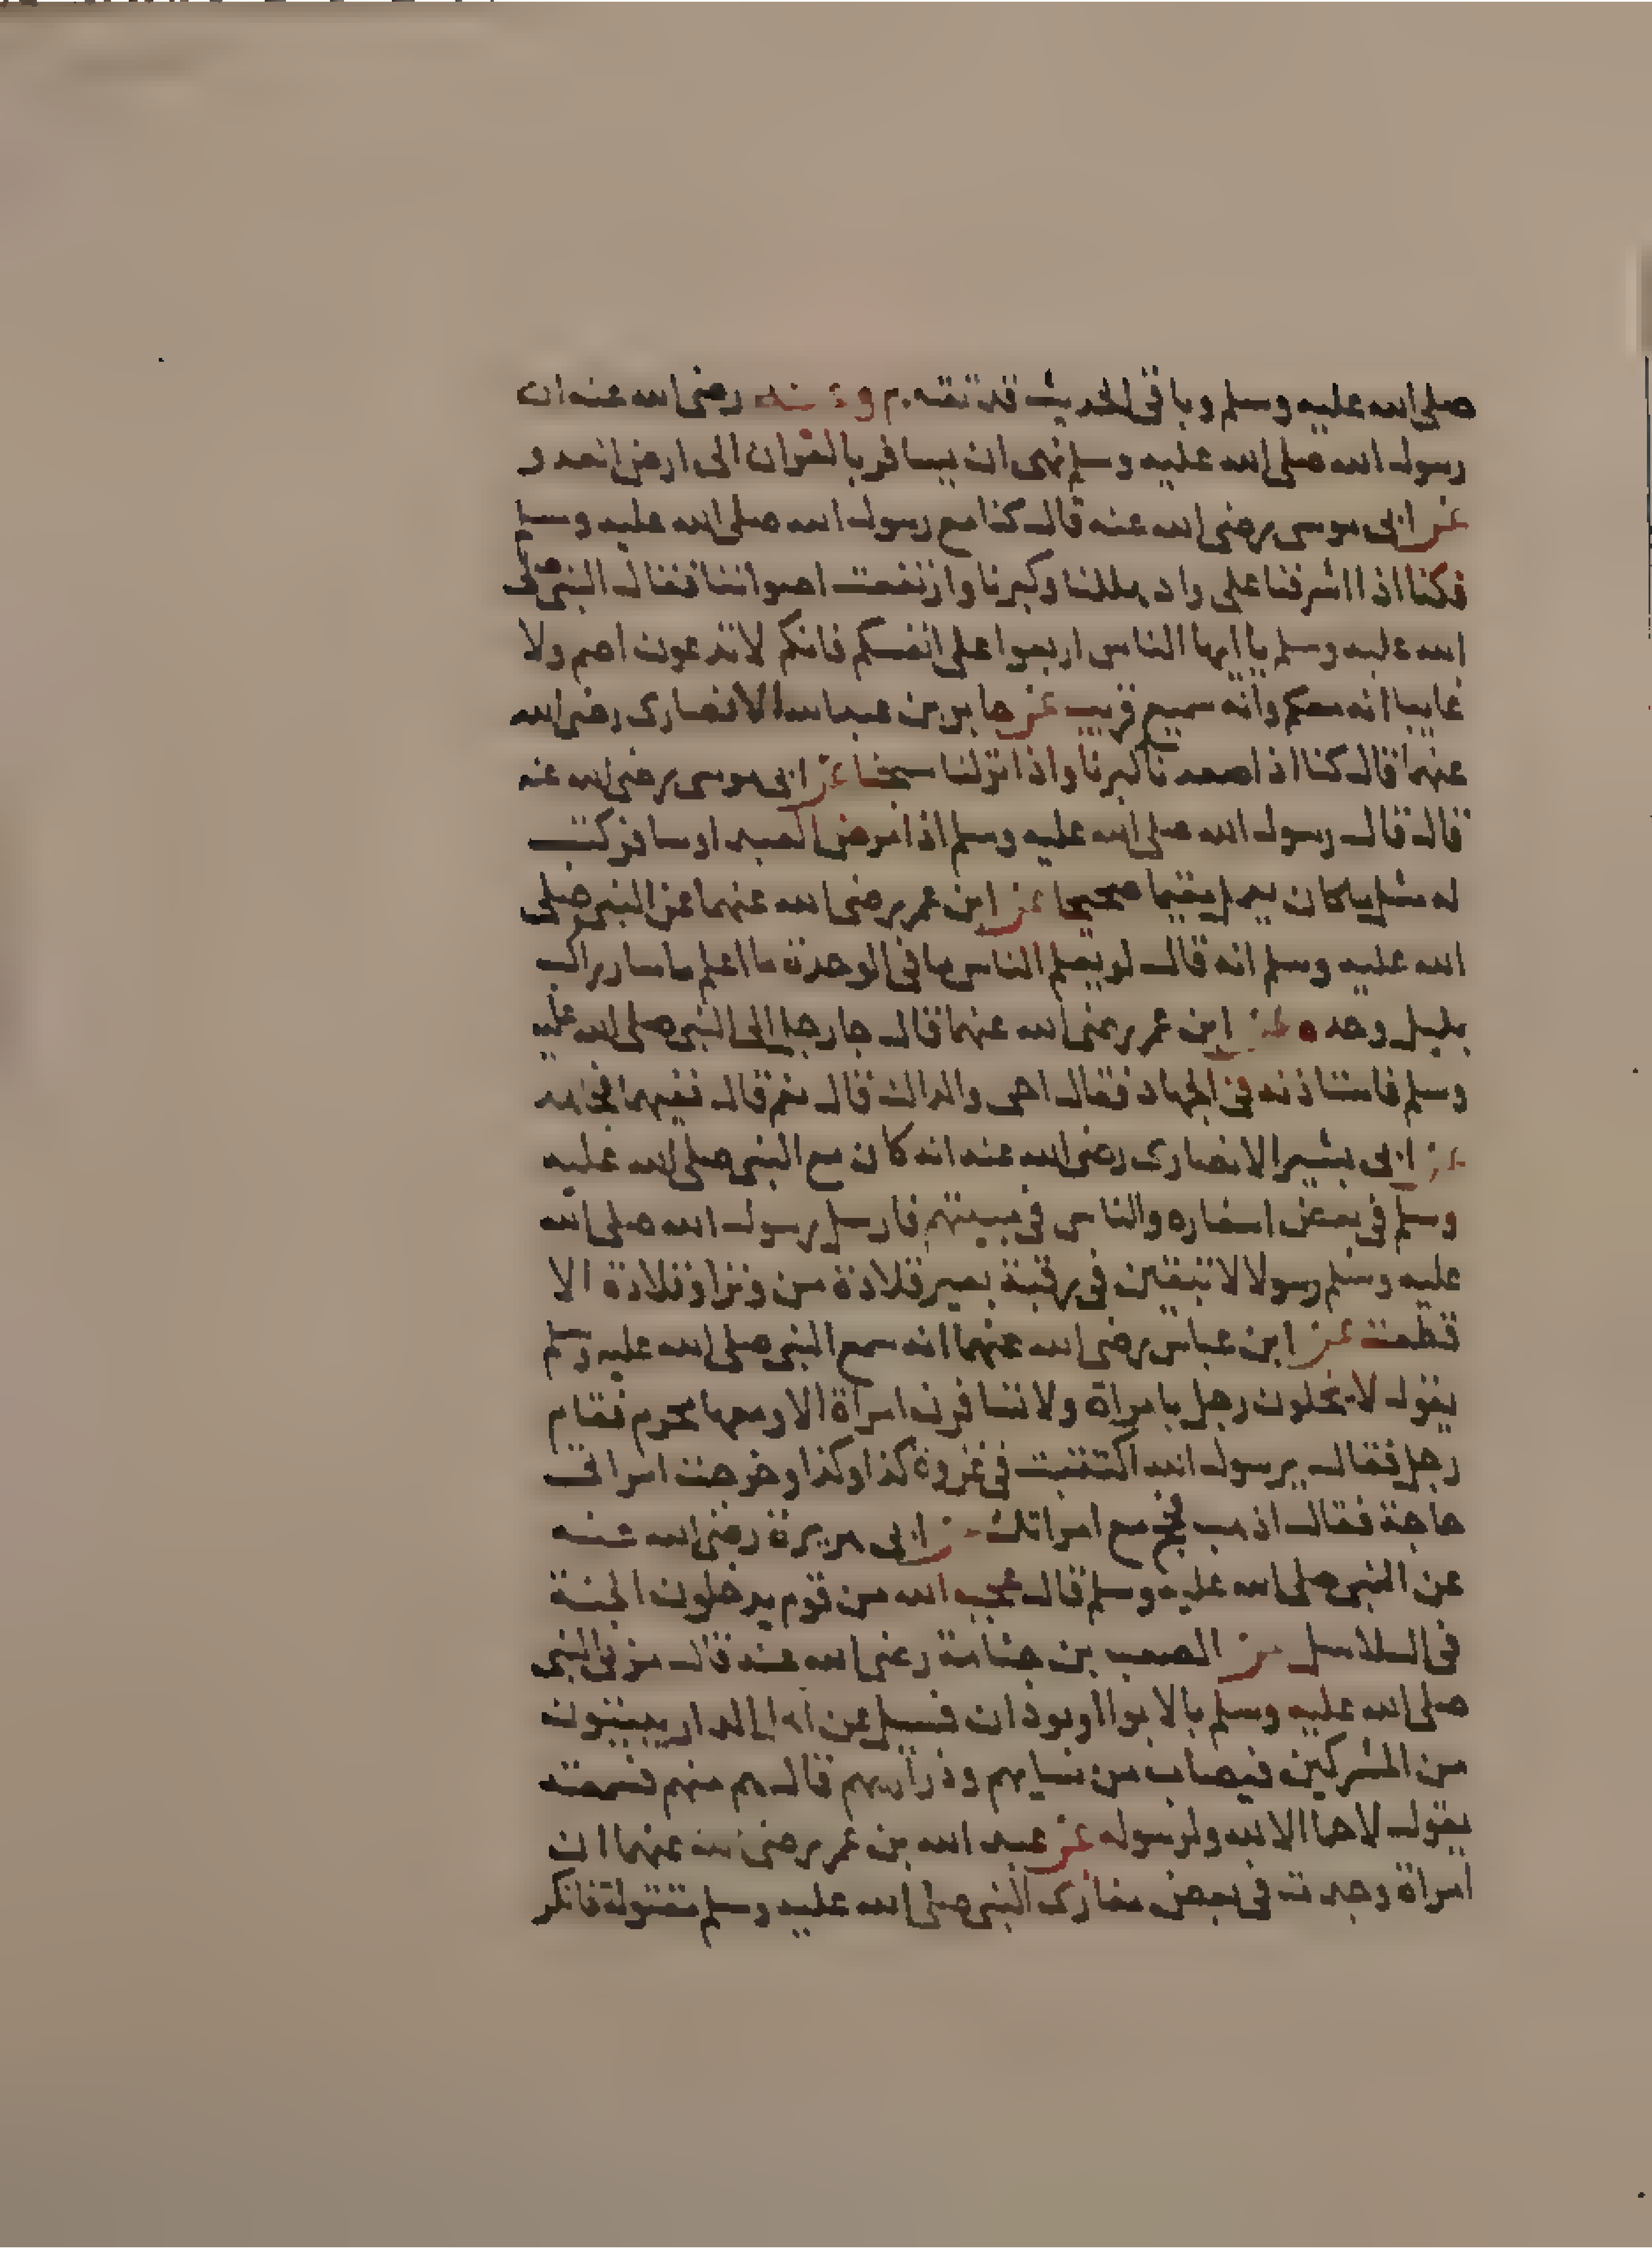 صلى الله عليه وسلم وباقى الحديث قد تقدم وعنه رضى الله عنه ان
رسول الله صلى الله عليه وسلم نهى ان يسافر بالقران الى ارض العدو
عن ابى موسى رضى الله عنه قال كنا مع رسول الله صلى الله عليه وسلم
فكنا اذا اشرفنا على واد هللنا وكبرنا وارتفعت اصواتنا فقال النبى صلى
الله عليه وسلم يا ايها الناس اربعوا على انفسكم فانكم لا تدعون اصم ولا
غايبا انه معكم وانه سميع قريب عن جابر بن عبد الله الانصارى رضى الله
عنهما قال كنا اذا صعدنا كبرنا واذا نزلنا سبحنا عن ابى موسى رضى الله عنه
قال قال رسول الله صلى الله عليه وسلم اذا مرض العبد او سافر كتب
له مثل ما كان يعمل مقيما صحيحا عن ابن عمر رضى الله عنهما عن النبى صلى
الله عليه وسلم انه قال لو يعلم الناس ما فى الوحدة ما اعلم ما سار راكب
بليل وحده عن ابن عمر رضى الله عنهما قال جا رجل الى النبى صلى الله عليه
وسلم فاستاذنه فى الجهاد فقال احى والداك قال نعم قال ففيهما فجاهد
عن ابى بشير الانصارى رضى الله عنه انه كان مع النبى صلى الله عليه
وسلم فى بعض اسفاره والناس فى مبيتهم فارسل رسول الله صلى الله
عليه وسلم رسولا لا تبقين فى رقبة بعير قلادة من وتر او قلادة الا
قطعت عن ابن عباس رضى الله عنهما انه سمع النبى صلى الله عليه وسلم
يقول لا يخلون رجل بامراة ولا تسافرن امراة الا ومعها محرم فقام
رجل فقال يرسول الله اكتتبت فى غزوة كذا وكذا وخرجت امراتى
حاجة فقال اذهب فحج مع امراتك عن ابى هريرة رضى الله عنه
عن النبى صلى الله عليه وسلم قال عجب الله من قوم يدخلون الجنة
فى السلاسل عن الصعب بن جثامة رضى الله عنه قال مر بى النبى
صلى الله عليه وسلم بالابوا او بودان فسيل عن اهل الدار يبيتون
من المشركين فيصاب من نسايهم وذراريهم قال هم منهم فسمعته
يقول لا حما الا لله ولرسوله عن عبد الله بن عمر رضى الله عنهما ان
امراة وجدت فى بعض مغازى النبى صلى الله عليه وسلم مقتولة فانكر